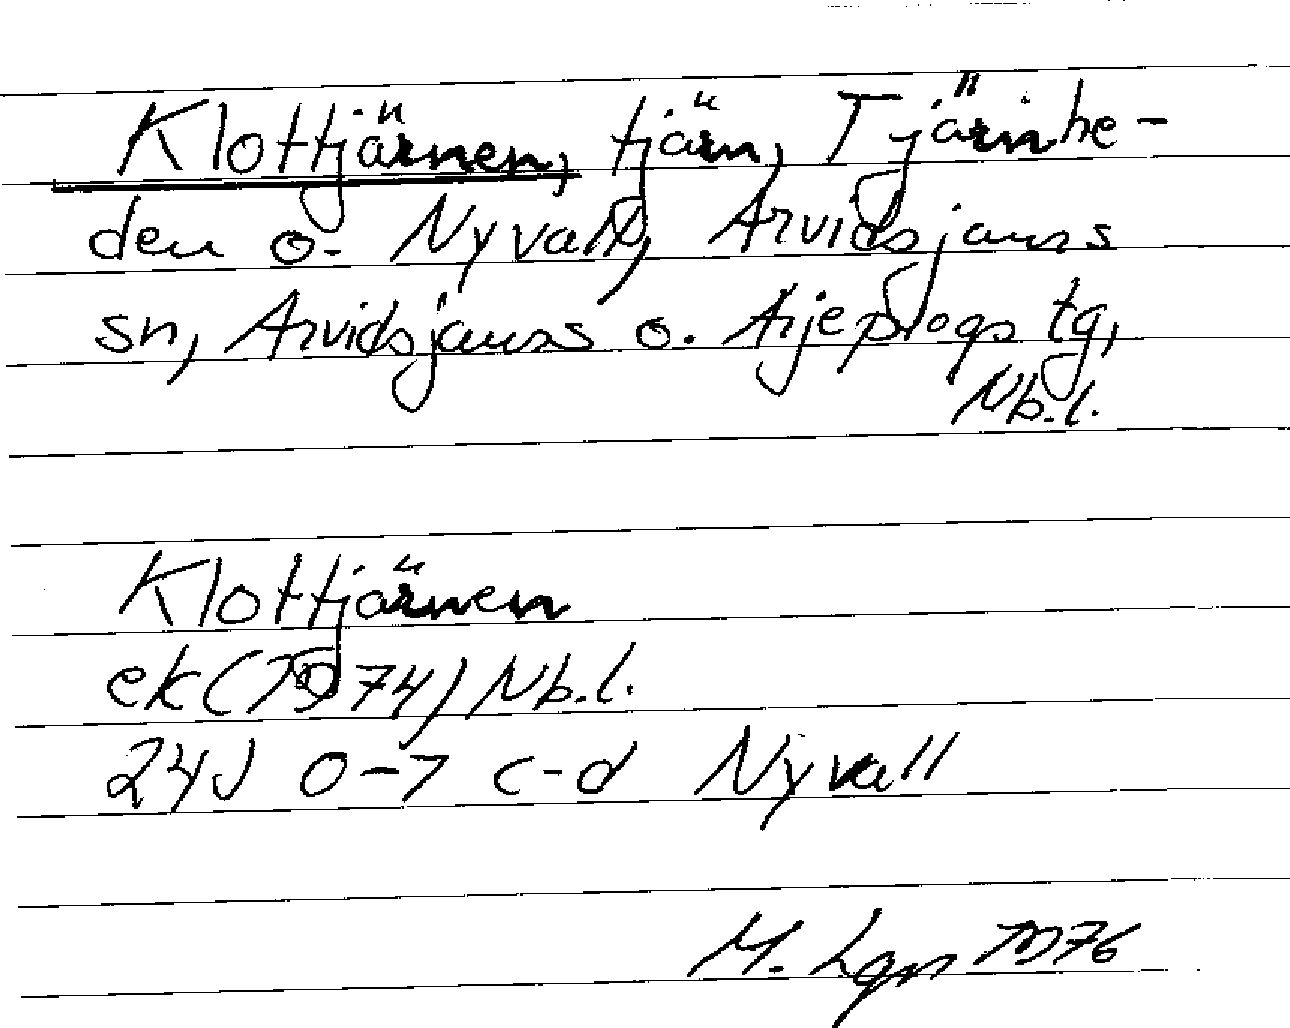 Klottjärnen, tjärn, Tjärnhe-
den o. Nyvall, Arvidsjaurs
sn, Arvidsjaurs o. Arjeplogs tg,
Nb.l.
Klottjärnen
ek (1974) Nb.l.
24J 0-7 c-d Nyvall
M. Lgn 1976